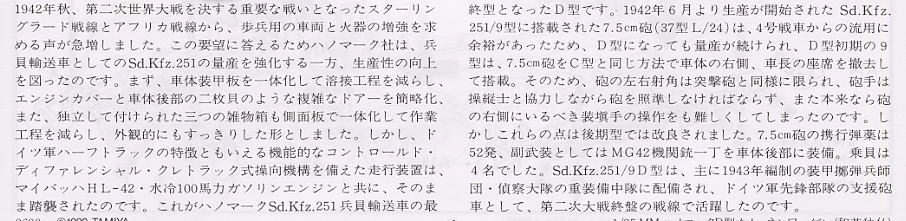 1942年秋、第二次世界大戦を決する重要な戦いとなったスターリン
グラード戦線とアフリカ戦線から、歩兵用の車両と火器の増強を求
める声が急増しました。この要望に答えるためハノマーク社は、兵
員輸送車としてのSd.Kfz.251の量産を強化する一方、生産性の向上
を図ったのです。まず、車体装甲板を一体化して溶接工程を減らし、
エンジンカバーと車体後部の二枚貝のような複雑なドアーを簡略化、
また、独立して付けられた三つの雑物箱も側面板で一体化して作業
工程を減らし、外観的にもすっきりした形としました。しかし、ド
イツ軍ハーフトラックの特徴ともいえる機能的なコントロールド・
ディファレンシャル・クレトラック式操向機構を備えた走行装置は、
マイバッハHL-42・水冷100馬力ガソリンエンジンと共に、そのま
ま踏襲されたのです。これがハノマークSd.Kfz.251兵員輸送車の最
終型となったD型です。1942年6月より生産が開始されたSd.Kfz.
251/9型に搭載された7.5cm砲(37型L/24)は、4号戦車からの流用に
余裕があったため、D型になっても量産が続けられ、D型初期の9
型は、7.5cm砲をC型と同じ方法で車体の右側、車長の座席を撤去し
て搭載。そのため、砲の左右射角は突撃砲と同様に限られ、砲手は
操縦士と協力しながら砲を照準しなければならず、また本来なら砲
の右側にいるべき装填手の操作をも難しくしてしまったのです。し
かしこれらの点は後期型では改良されました。7.5cm砲の携行弾薬は
52発、副武装としてはMG42機関銃一丁を車体後部に装備。乗員は
4名でした。Sd.Kfz.251/9D型は、主に1943年編制の装甲擲弾兵師
団・偵察大隊の重装備中隊に配備され、ドイツ軍先鋒部隊の支援砲
車として、第二次大戦終盤の戦線で活躍したのです。
©1999 TAMIYA